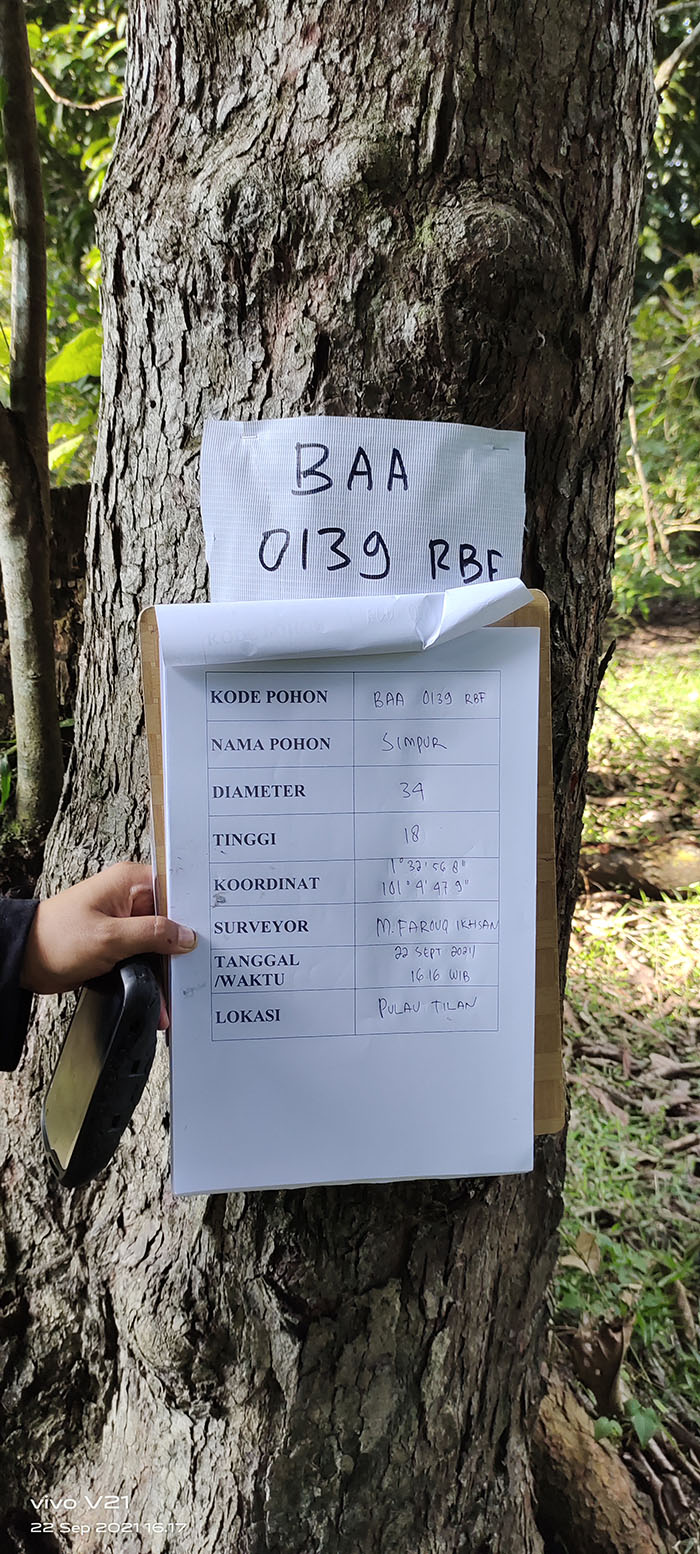 BAA
0139 RBF
KODE POHON BAA 0139 RBF
NAMA POHON SIMPUR
DIAMETER 34
TINGGI 18
KOORDINAT 1°32'56 8"
101°4'47 9"
SURVEYOR M. FAROUQ IKHSAN
TANGGAL 22 SEPT 2021/
/WAKTU 16 16 WIB
LOKASI PULAU TILAN
vivo V21
22 Sep 2021 16.17